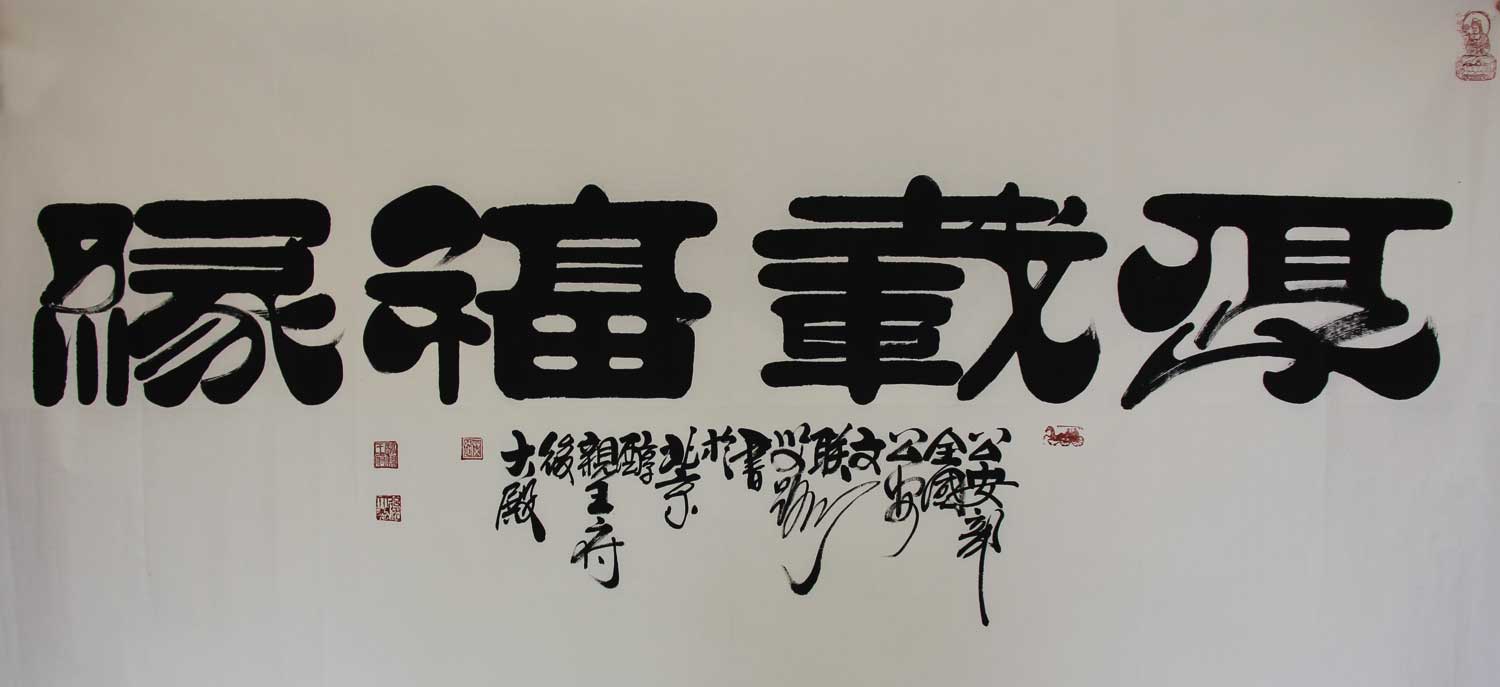 厚載福緣
公安部
全國
公安
文
聯
書
於
北京
醇
親王府
後
大殿